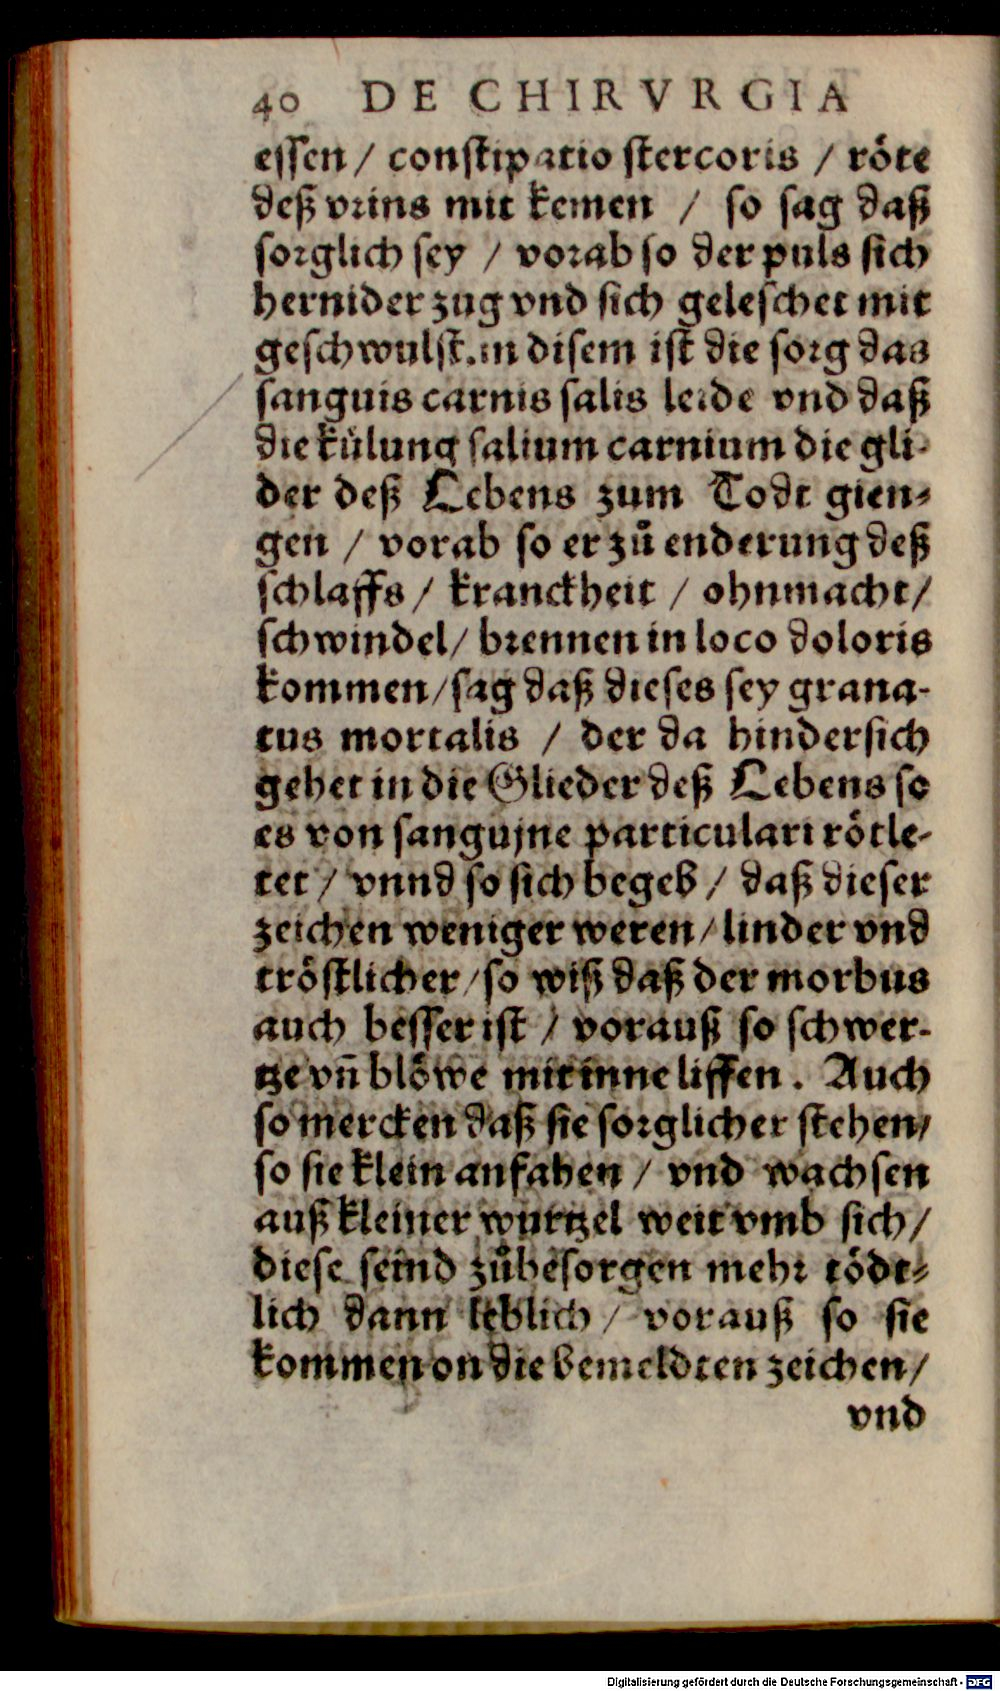 40 DE CHIRVRGIA
essen / constipatio stercoris / röte
deß vrins mit kemen / so sag daß
sorglich sey / vorab so der puls sich
hernider zug vnd sich geleschet mit
geschwulst. in disem ist die sorg das
sanguis carnis salis leide vnd daß
die külung salium carnium die gli-
der deß Lebens zum Todt gien-
gen / vorab so er zů enderung deß
schlaffs / kranckheit / ohnmacht /
schwindel / brennen in loco doloris
kommen / sag daß dieses sey grana-
tus mortalis / der da hindersich
gehet in die Glieder deß Lebens so
es von sangujne particulari rötle-
tet / vnnd so sich begeb / daß dieser
zeichen weniger weren / linder vnd
tröstlicher / so wiß daß der morbus
auch besser ist / vorauß so schwer-
tze vñ blöwe mit inne liffen. Auch
so mercken daß sie sorglicher stehen /
so sie klein anfahen / vnd wachsen
auß kleiner wurtzel weit vmb sich /
diese seind zůbesorgen mehr tödt-
lich dann leblich / vorauß so sie
kommen on die bemeldten zeichen /
vnd
Digitalisierung gefördert durch die Deutsche Forschungsgemeinschaft - DFG